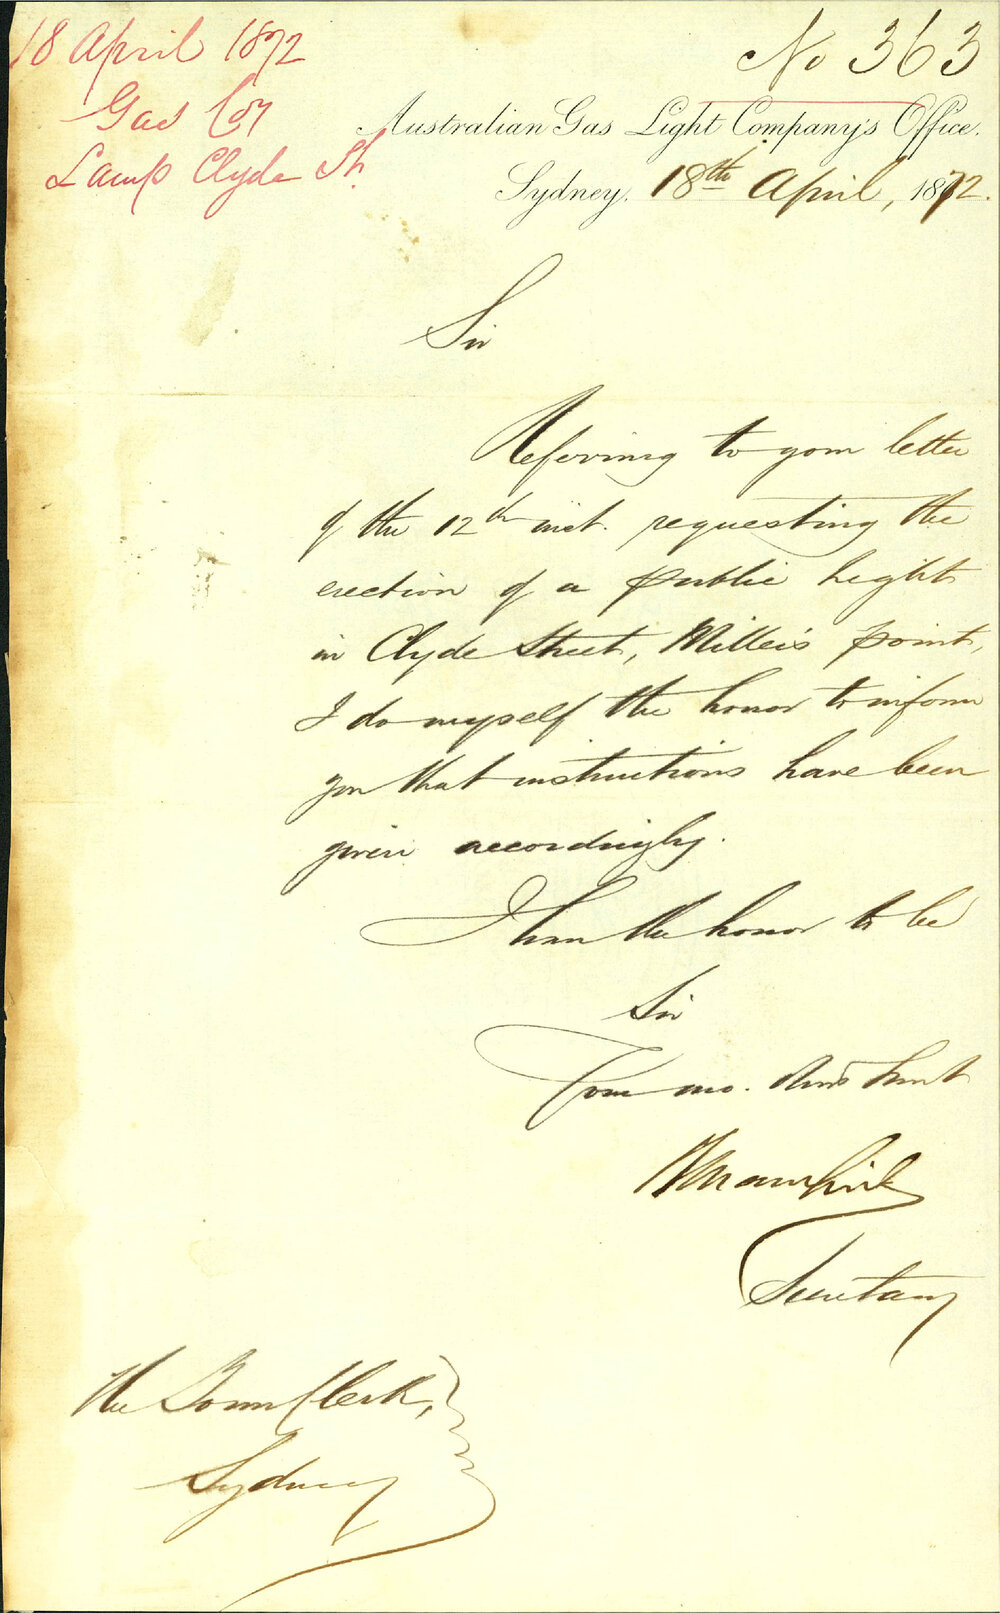 18 April 1872
Gas Coy
Lamp Clyde St.
No 363
Australian Gas Light Company's Office.
Sydney. 18th April, 1872.
Sir
Referring to your letter
of the 12th inst. requesting the
erection of a public light
in Clyde Street, Miller's point,
I do myself the honor to inform
you that instructions have been
given accordingly.
I have the honor to be
Sir
Your mo. Obed Servt
Secretary
The Town Clerk,
Sydney